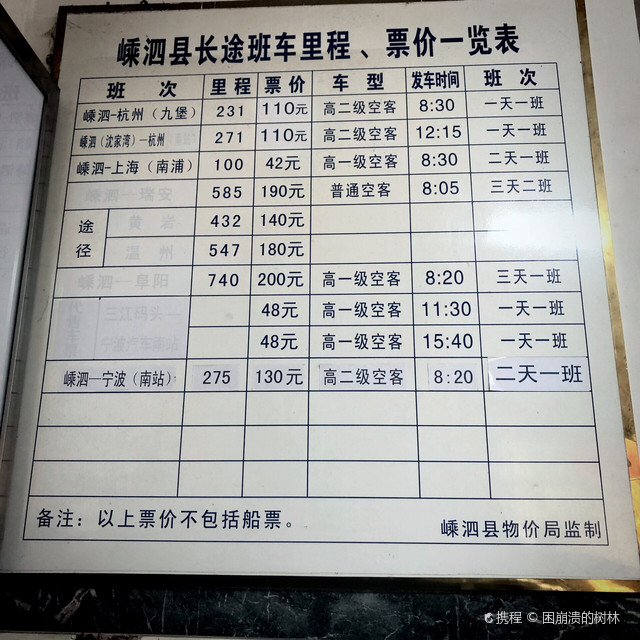 嵊泗县长途班车里程、票价一览表
班 次 里程 票价 车 型 发车时间 班 次
嵊泗-杭州（九堡） 231 110元 高二级空客 8:30 一天一班
嵊泗（沈家湾）—杭州 271 110元 高一级空客 12:15 一天一班
嵊泗-上海（南浦） 100 42元 高一级空客 8:30 二天一班
嵊泗—瑞安 585 190元 普通空客 8:05 三天二班
途径 黄岩 432 140元
温州 547 180元
嵊泗—阜阳 740 200元 高一级空客 8:20 三天一班
三江码头— 48元 高一级空客 11:30 一天一班
宁波汽车南站 48元 高一级空客 15:40 一天一班
嵊泗—宁波（南站） 275 130元 高二级空客 8:20 二天一班
备注：以上票价不包括船票。
嵊泗县物价局监制
携程 © 困崩溃的树林